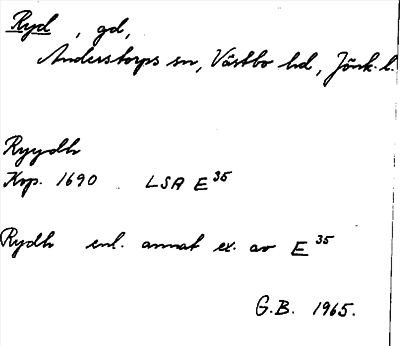 Ryd, gd,
Anderstorps sn, Västbo hd, Jönk. l.
Ryydh
Kop. 1690 LSA E 35
Rydh enl. annat ex. av E 35
G.B. 1965.